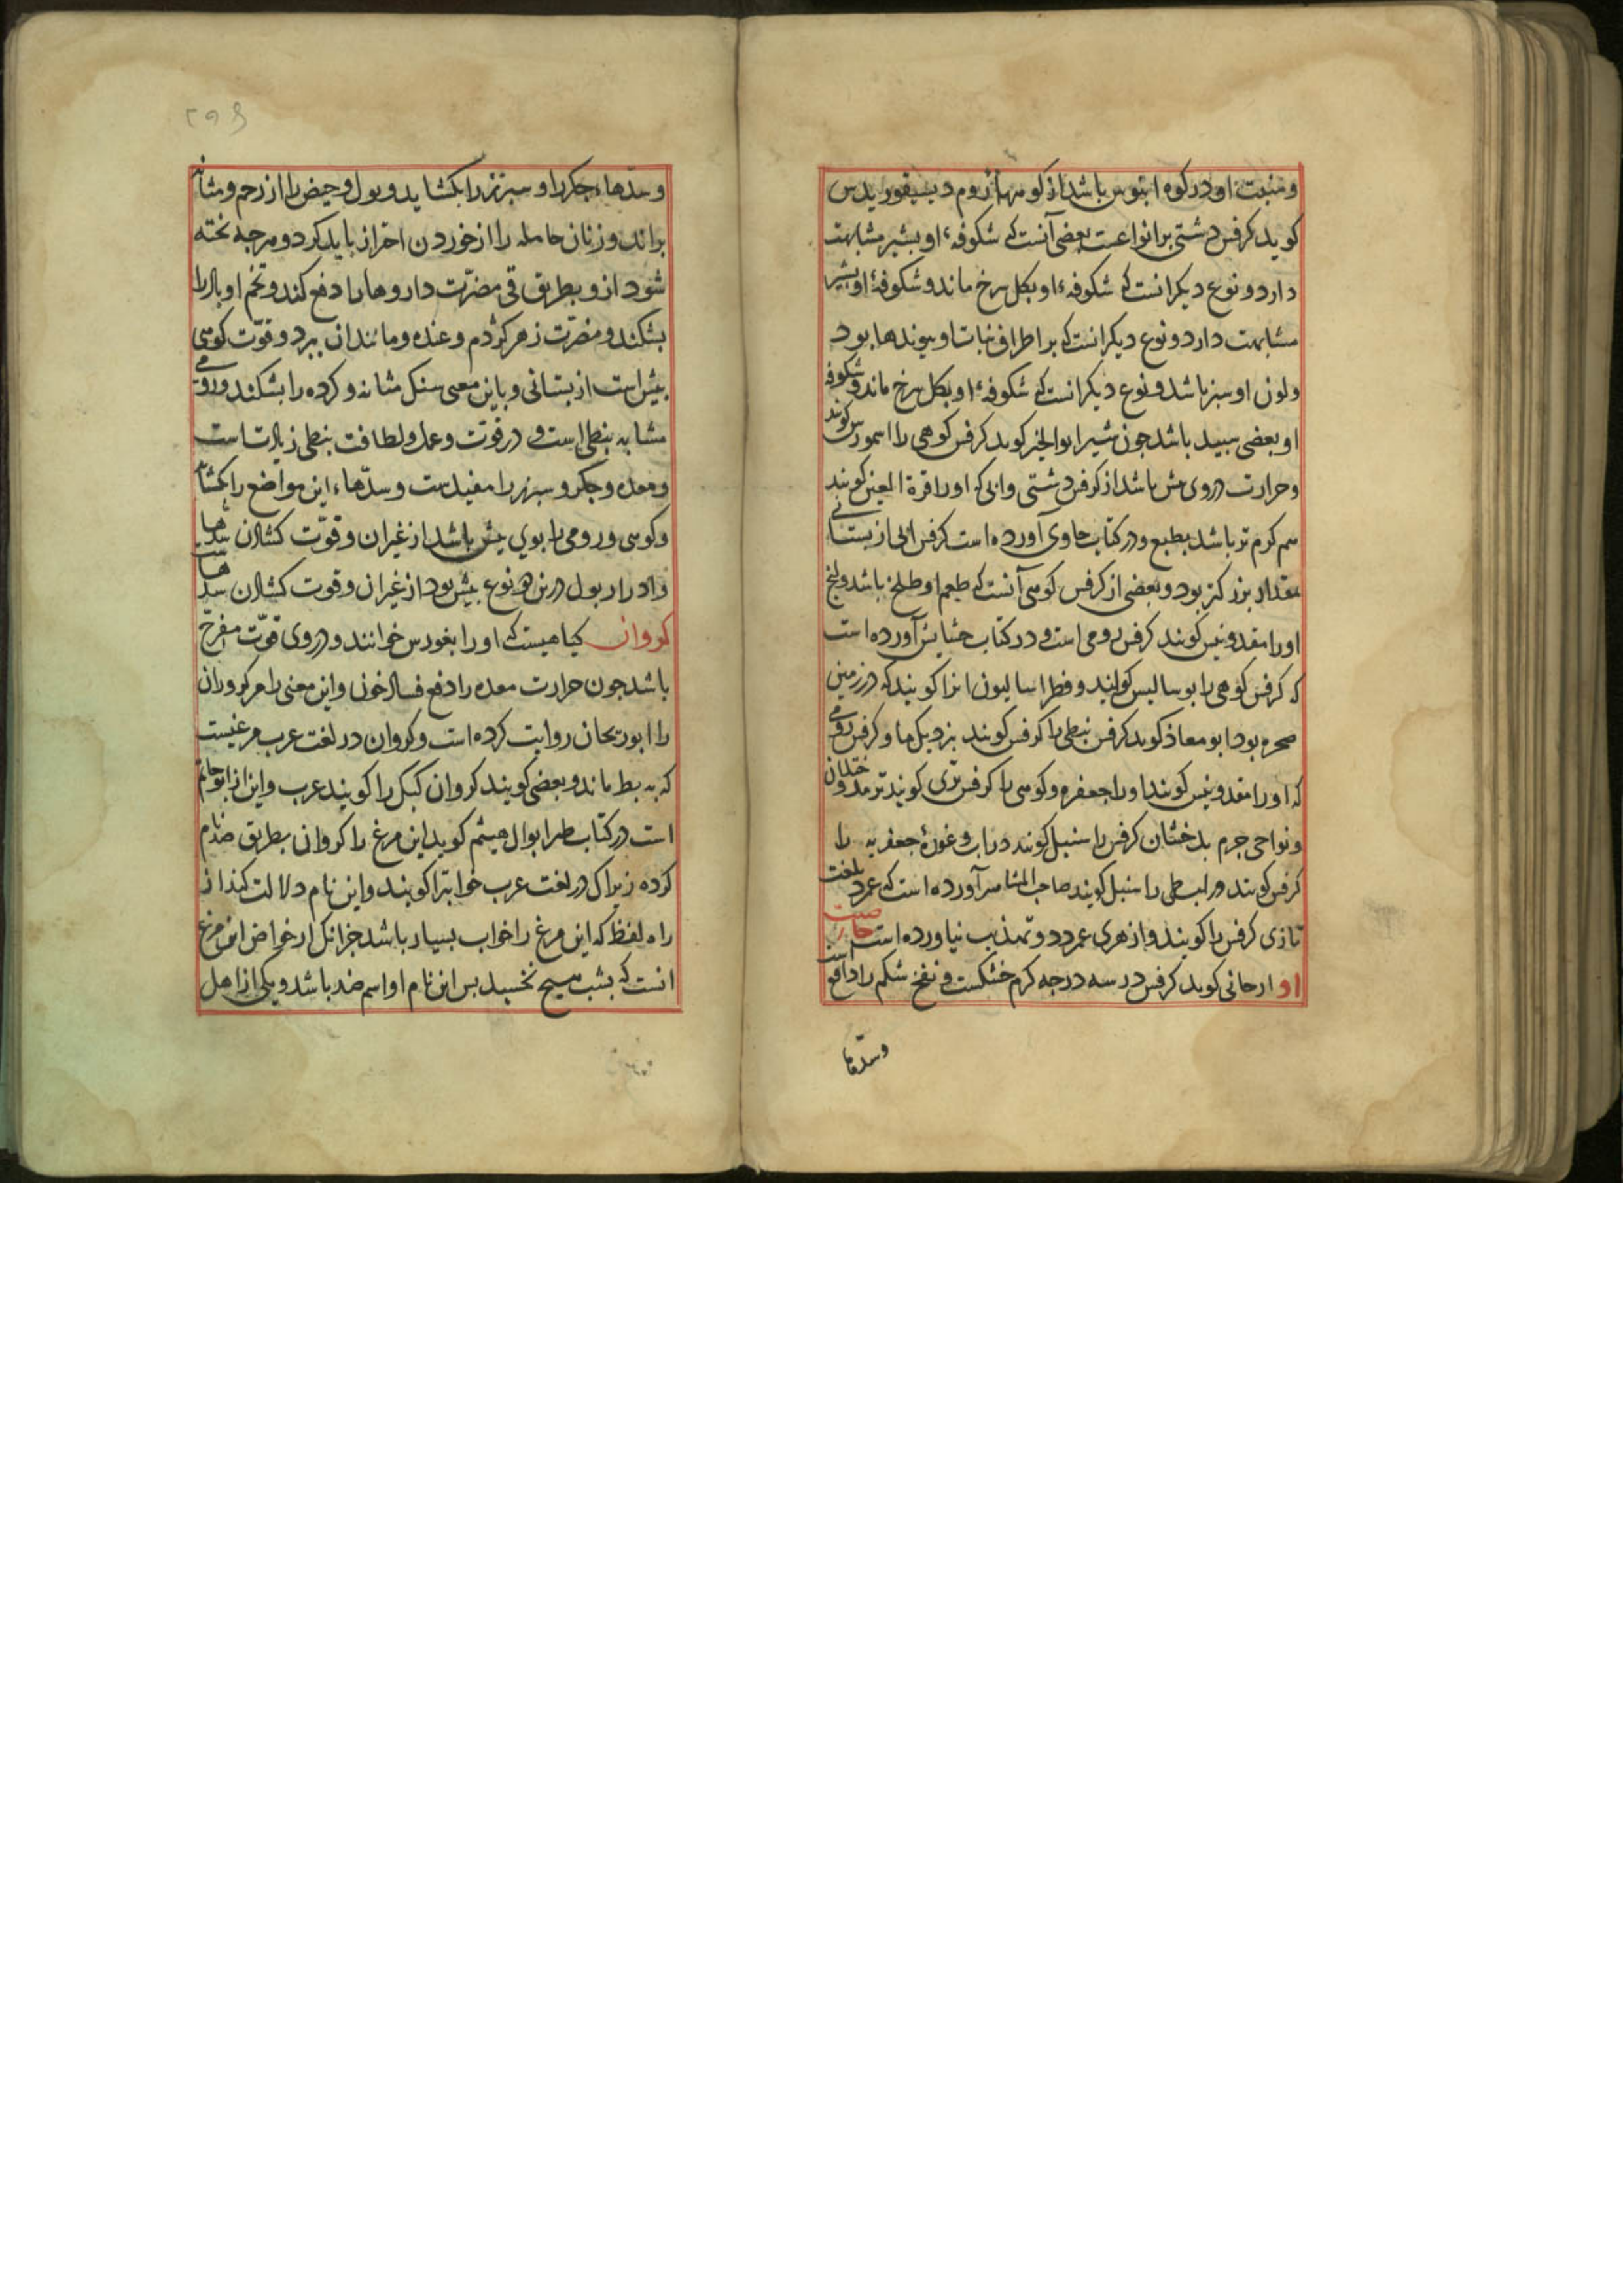 و منبت او در کوه اینوس باشد از کوههاء روم دیسقوریدس
کوید کرفس دشتی بر انواعست بعضی آنست کی شکوفهٔ او بشیر مشابهت
دارد و نوع دیکر انست کی شکوفهٔ او بکل سرخ ماند و شکوفهٔ او بشیر
مشابهت دارد و نوع دیکر انست کی بر اطراف نبات او پیوندها بود
و لون او سبز باشد و نوع دیکر انست کی شکوفهٔ او بکل سرخ ماند و شکوفه
او بعضی سپید باشد جون شیر ابوالخیر کوید کرفس کوهی را اسمورس کویند
و حرارت در وی بیش باشد از کرفس دشتی و ابی که او را قرة العین کویند
هم کرم تر باشد بطبع و در کتاب حاوی آورده است کرفس ابی از بستانی
بمقدار بزرکتر بود و بعضی از کرفس کوهی آنست کی طعم او طلخ باشد و تلخ
او را مقدونیس کویند کرفس رومی است و در کتاب حشایش آورده است
که کرفس کوهی را بوسالیس کوایند و فطراسالیون انرا کویند که در زمین
صحره بود ابو معاذ کوید کرفس نبطی را کرفس کویند بزدیک ما و کرفس رومی
که او را مقدونیس کویند او را جعفره و کوهی را کرفس تری کویند ترمد و ختلان
و نواحی جرم بدخشان کرفس را سنبل کویند دراب و غورهٔ جعفریه را
کرفس کویند و را بسطی را سنبل کویند صاحب المشاسر آورده است کی عمرد بلغت
تازی کرفس را کویند و ازهری عمردد و تهذیب نیاورده است خاصیت
او ارجانی کوید کرفس در سه درجه کرم خشکست و نفخ شکم را دافع است
وسدها
۲۹۶
و سدّهاء جکر را و سبرز را بکشاید و بول و حیض را از رحم و مثانه
براند و زنان حامله را از خوردن احتراز باید کرد و هرجه بخته
شود از و بطریق قی مضرّت داروها را دفع کند و تخم او باد را
بشکند و مضرّت زهر کژدم و غنده و مانند ان ببرد و قوّت کوهی
بیش است از بستانی و باین معنی سنک مثانه و کرده را بشکند و رومی
مشابه نبطی است و در قوّت و عمل و لطافت نبطی زیادت است
و معده و جکر و سبرز را مفیدست و سدّهاء این مواضع را بکشاید
و کوهی و رومی را بوی بیش باشد از غیران و قوّت کشادن سدها
و ادرار بول درین هر نوع بیش بود از غیران و قوت کشادن سدهاست
کروان کیاهیست که او را بغورس خوانند و در وی قوّت مفرح
باشد جون حرارت معده را دفع فساد خون و این معنی را مر کروان
را ابوریحان روایت کرده است و کروان در لغت عرب مرغیست
که به بط ماند و بعضی کویند کروان کبک را کویند عرب و این از ابو حاتم
است در کتاب طیر ابوال هیثم کوید این مرغ را کروان بطریق ضد نام
کرده زیراک در لغت عرب خواب را کویند و این نام دلالت کند از
راه لفظ که این مرغ را خواب بسیار باشد جزانک از خواص این مرغ
انست که بشب هیج نخسبد بس این نام او اسم ضد باشد و یکی از اهل